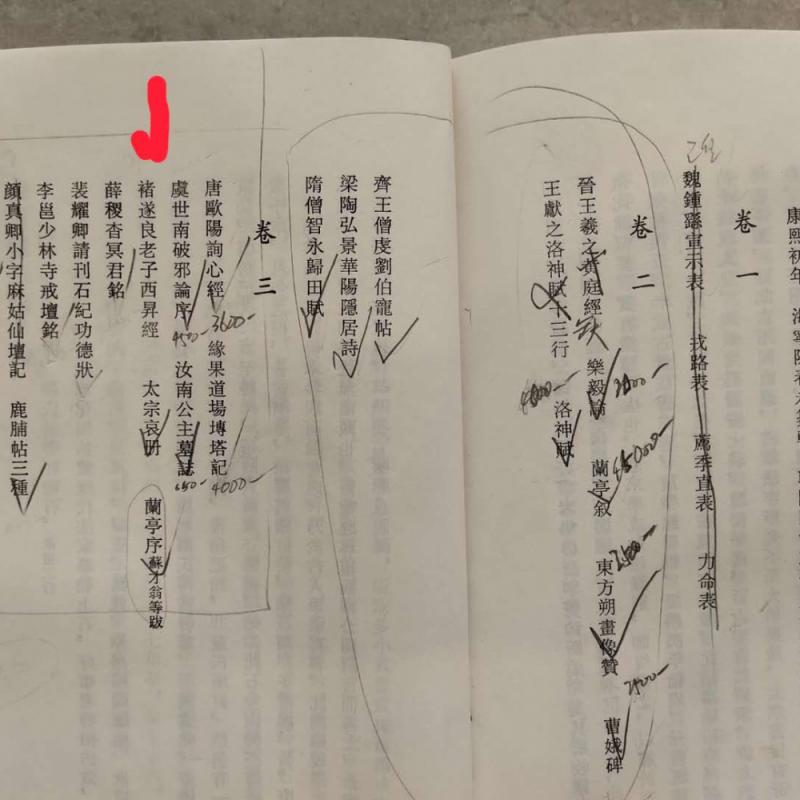 康熙初年
卷一
魏鍾繇宣示表 戎路表 薦季直表 力命表
卷二
晉王羲之黃庭經 樂毅論 蘭亭敘 東方朔畫像贊 曹娥碑
2500-
2900-
王獻之洛神賦十三行 洛神賦
齊王僧虔劉伯寵帖
梁陶弘景華陽隱居詩
隋僧智永歸田賦
卷三
唐歐陽詢心經 緣果道場塼塔記
3600-
4000-
虞世南破邪論序 汝南公主墓誌
4500-
650-
褚遂良老子西昇經 太宗哀册 蘭亭序蘇才翁等跋
薛稷杳冥君銘
裴耀卿請刊石紀功德狀
李邕少林寺戒壇銘
顏真卿小字麻姑仙壇記 鹿脯帖三種